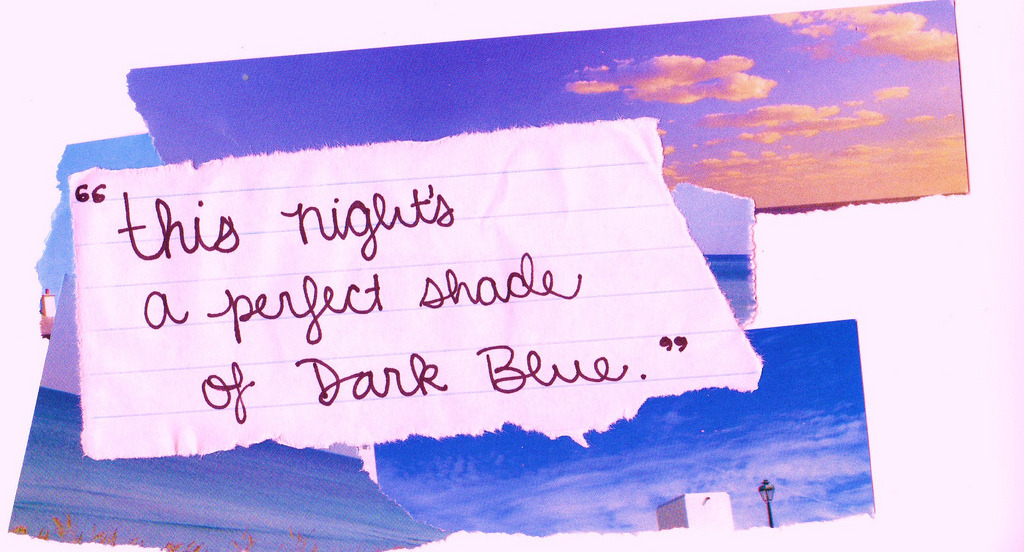 “this night's
a perfect shade
of Dark Blue.”